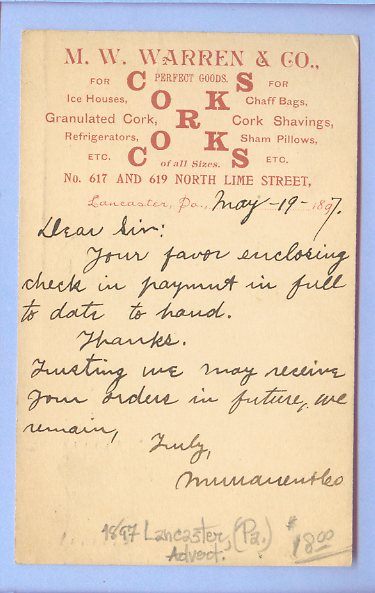 M. W. WARREN & CO.,
PERFECT GOODS.
FOR CORKS FOR
Ice Houses, Chaff Bags,
Granulated Cork, Cork Shavings,
Refrigerators, Sham Pillows,
ETC. CORKS ETC.
of all Sizes.
No. 617 AND 619 NORTH LIME STREET,
Lancaster, Pa., May -19- 1897.
Dear Sir:
Your favor enclosing
check in paymnt in full
to date to hand.
Thanks.
Trusting we may receive
your orders in future, we
remain,
Truly,
MWWarren&Co
1897 Lancaster, (Pa.) $18.00
Advert.